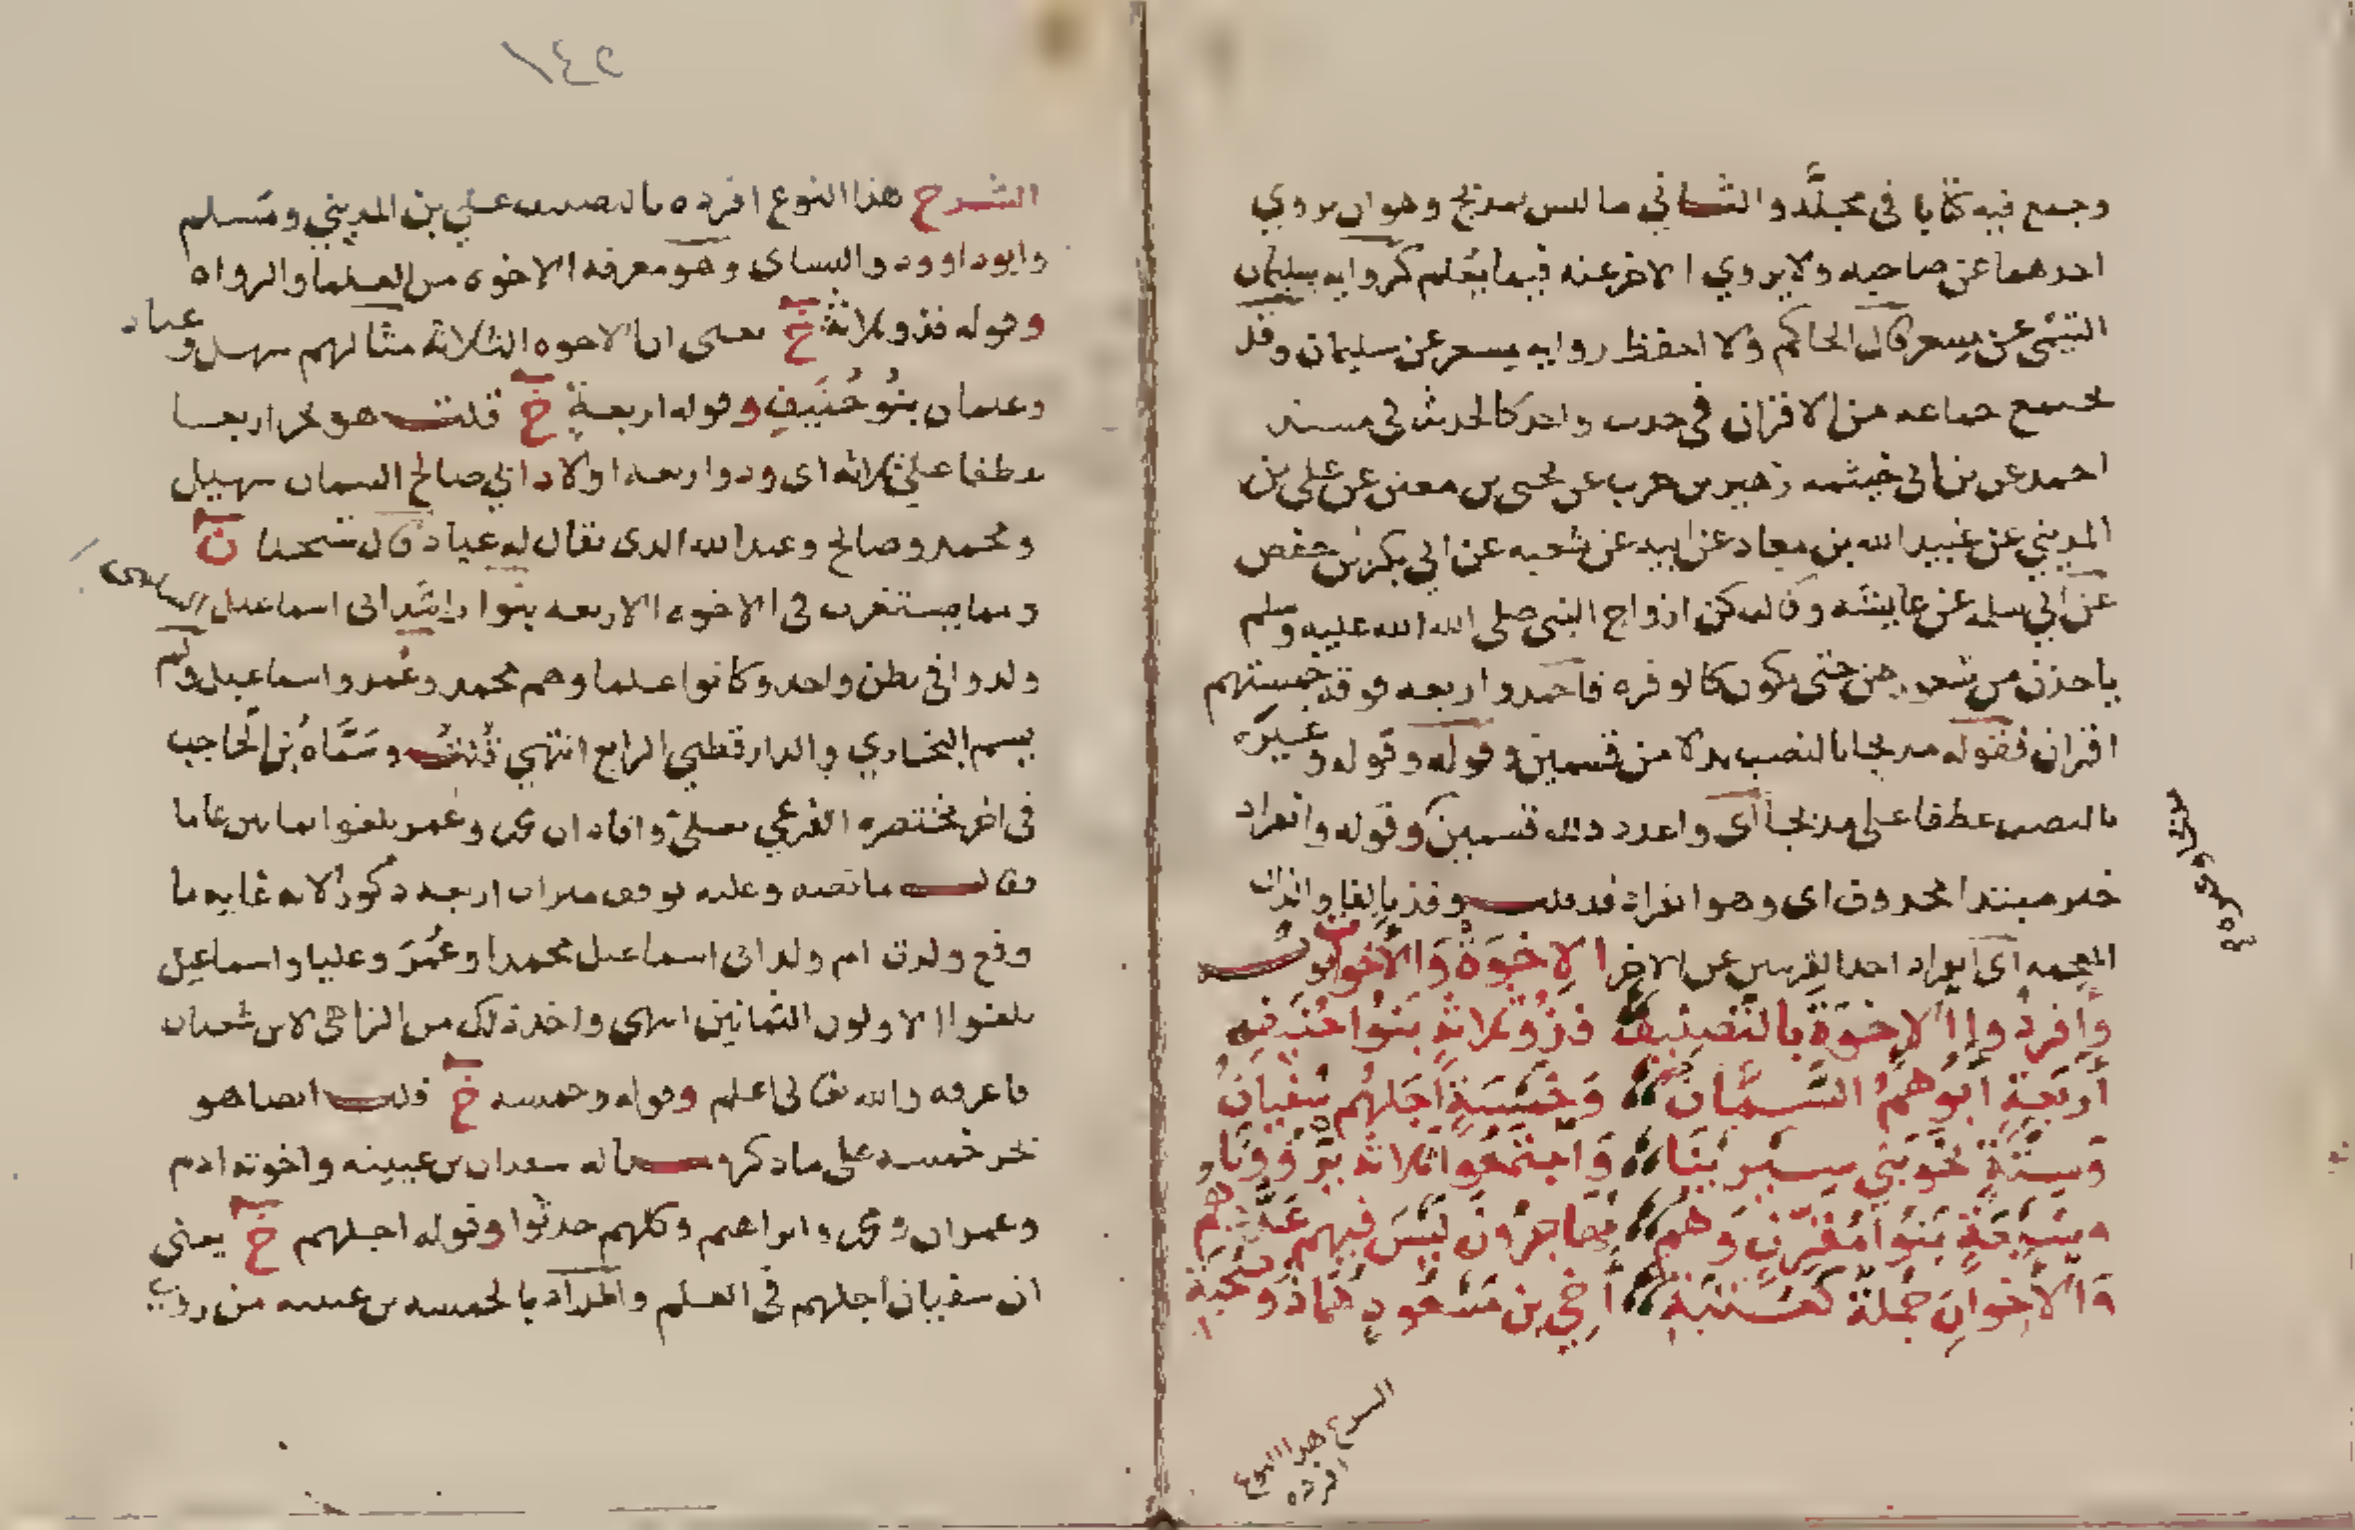 وجمع فيه كتابا فى مجلَّد والثاني ما ليس بمدبج وهو ان يروي
احدهما عن صاحبه ولا يروي الاخر عنه فيما يعُلم كروايه سليمان
التيمى عن مسعر قال الحاكم ولا احفظ روايه مسعر عن سليمان وقد
يجتمع جماعه من الاقران في حديث واحد كالحديث في مسند
احمد عن بن ابى خيثمه زهير بن حرب عن يحيى بن معين عن على بن
المديني عن عبيد الله بن معاد عن ابيه عن شعبه عن ابي بكر بن حفص
عن ابي سلمه عن عايشه وقالت كن ازواج النبى صلى الله عليه وسلم
ياخذن من شعورهن حتى يكون كالوفره فاحمد واربعه فوقه خمستهم
اقران فقوله مدبجا بالنصب بدلا من قسمين وقوله وقوله وغيرَه
بالنصب عطفا على مدبجا أى واعدد قسمين وقوله وانفراد
خبر مبتدا محدوف اى وهو انفراد فد قلت وفذ بالفا والذال
المعجمه اى انفراد احد القرينين عن الاخر الإخوَةُ وَالأخوات
وَأفردُوا الإخوَةَ بالتَّصنِيف فذُو ثلاثةٍ بَنُوا حُنَيفِ
أربَعَةٍ ابُوهُمُ السَّمَّانُ وَخمسَةٍ اَجَلهُم سُفيَانُ
وَستَّةٍ نحوَ بَني سِيرينَا وَاجتمَعُوا ثلاثة يَروُونَا
وَسَبعَةٍ بَنُوا مُقَرِّنٍ وَهم مُهَاجرُونَ لَيسَ فيهم عَدُّهُم
وَالأخوانِ جملَةٌ كعُتبَةِ أخِي بن مَسعُودٍ هُمَا ذُو صُحبَة
الشرح هذا النوع
افرده
الشرح هذا النوع افرده بالتصنيف علي بن المديني ومَسلم
وابود اوود والنساى وهو معرفه الاخوه من العلما والرواه
وقوله فذو ثلاثة خ يعنى ان الاخوه الثلاثة مثالهم سهل وعباد
وعثمان بنُو حُنَيفٍ وقوله اربعةٍ خ قلت هو بجر اربعه
عطفا على ثلاثه اى ودو اربعه اولاد ابي صالح السمان سهيل
ومحمد وصالح وعبد الله الدى يقال له عباد قال شيخنا ن
ومما يستغرب فى الاخوه الاربعه بنوا راشد ابى اسماعيل السلمى
ولدوا فى بطن واحد وكانوا علما وهم محمد وعُمر واسماعيل ولم
يسم البخاري والدارقطني الرابع انتهي قُلتُ وسَمَّاهُ بن الحاجب
فى اخر مختصره الفرعي عليّ وافاد ان وعمر بلغوا ثمانين عاما
فقالـــت ما نصه وعليه توقف ميراث اربعه ذكور لانه غايه ما
وقع ولدت ام ولد ابى اسماعيل محمدا وعُمَرَ وعليا واسماعيل
بلغوا الاولون الثمانين انتهى واخذ ذلك من الزاهى لابن شعبان
فاعرفه والله تعالى اعلم وقوله وخمسه خ قلت ايضا هو
بجر خمسه على ما ذكر مثاله سفيان بن عيينه واخوته ادم
وعمران ومحمد وابراهيم وكلهم حدثوا وقوله اجلهم خ يعنى
ان سفيان اجلهم فى العلم والمراد بالخمسه بن عيينه من روي